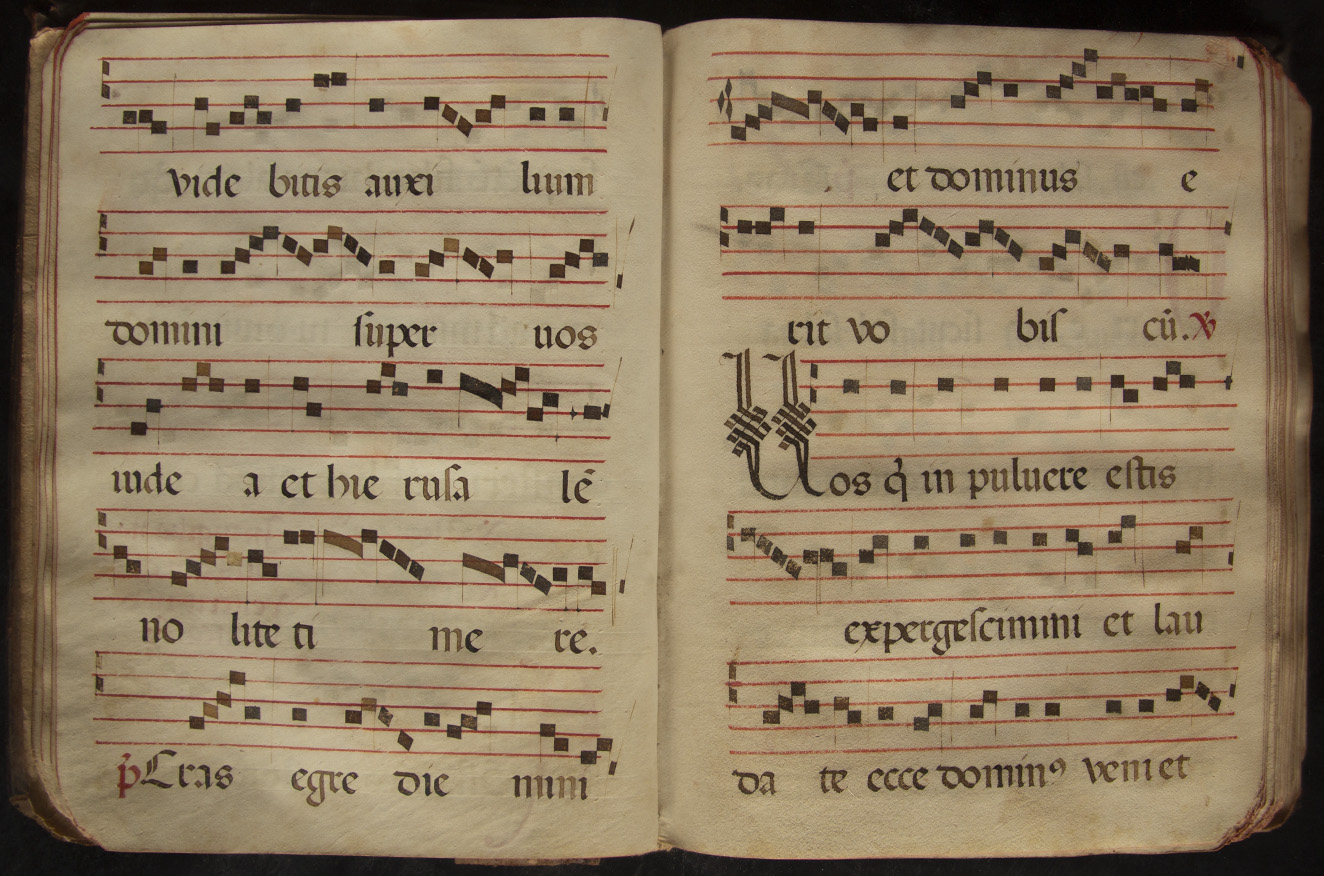 vide bitis auxi lium
domini super uos
iude a et hie rusa lē
no lite ti me re.
p̄ Cras egre die mini
et dominus e
rit vo bis cū. V
Uos q̄ in puluere estis
expergescimini et lau
da te ecce domin⁹ veniet